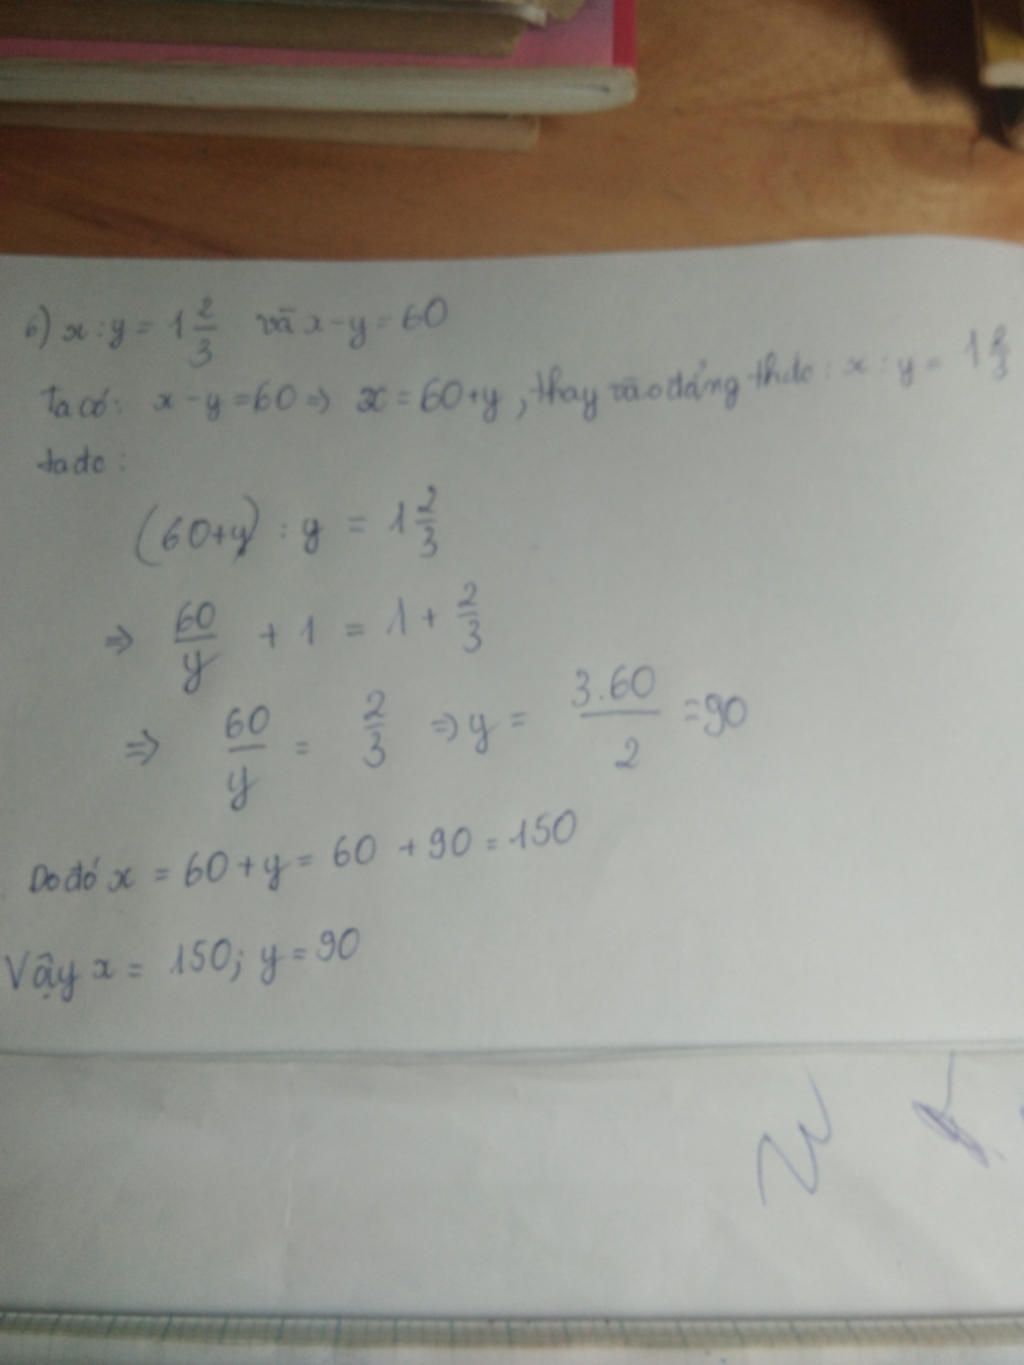 b) x : y = 1 2/3 và x - y = 60
Ta có: x - y = 60 => x = 60 + y, thay vào đẳng thức: x : y = 1 2/3
ta đc:
(60+y) : y = 1 2/3
=> 60/y + 1 = 1 + 2/3
=> 60/y = 2/3 => y = 3.60/2 = 90
Do đó x = 60 + y = 60 + 90 = 150
Vậy x = 150; y = 90